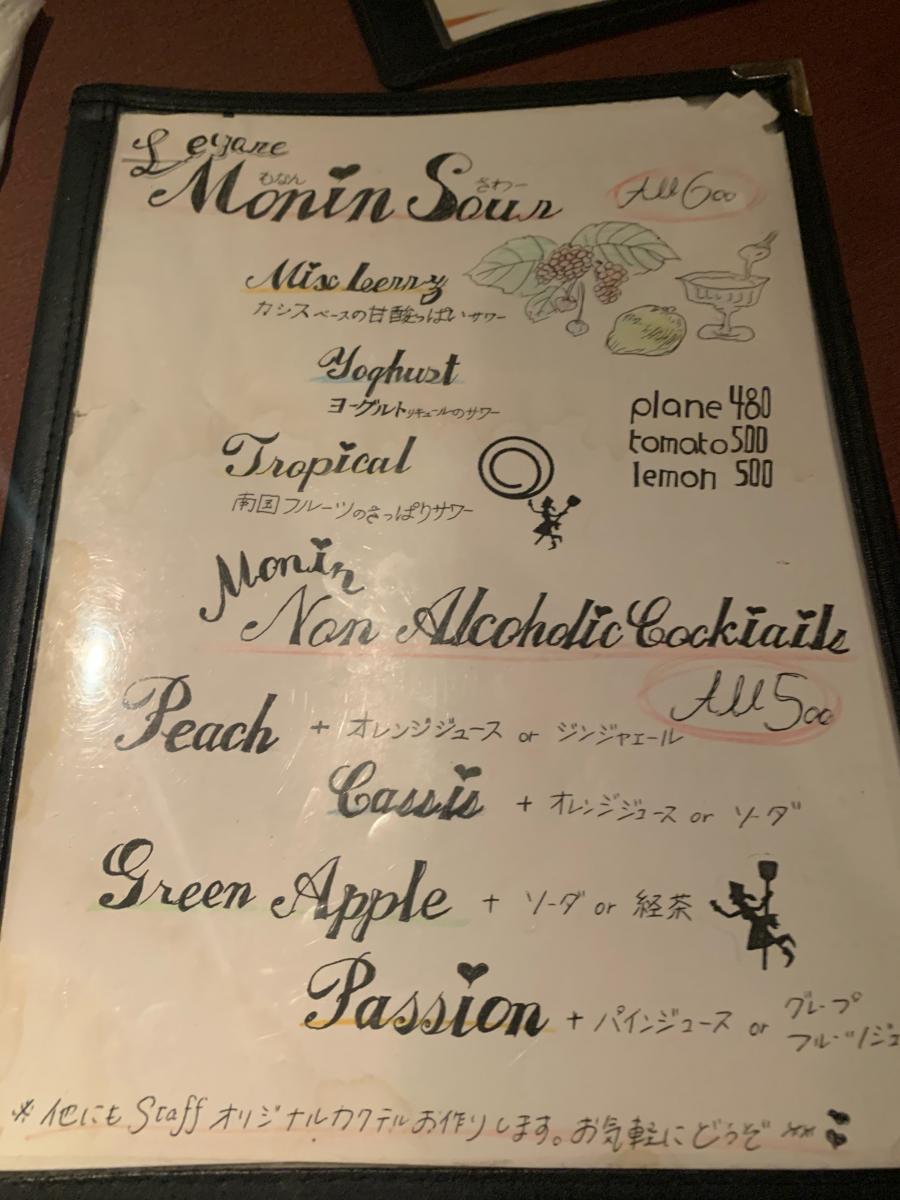 Legare
もなん さわー
Monin Sour All 600
Mix berry
カシスベースの甘酸っぱいサワー
Yoghurt
ヨーグルトリキュールのサワー
plane 480
tomato 500
lemon 500
Tropical
南国フルーツのさっぱりサワー
Monin
Non Alcoholic Cocktails
All 500
Peach + オレンジジュース or ジンジャエール
Cassis + オレンジジュース or ソーダ
Green Apple + ソーダ or 紅茶
Passion + パインジュース or グレープ
フルーツジュ
※他にもStaffオリジナルカクテルお作りします。お気軽にどうぞ